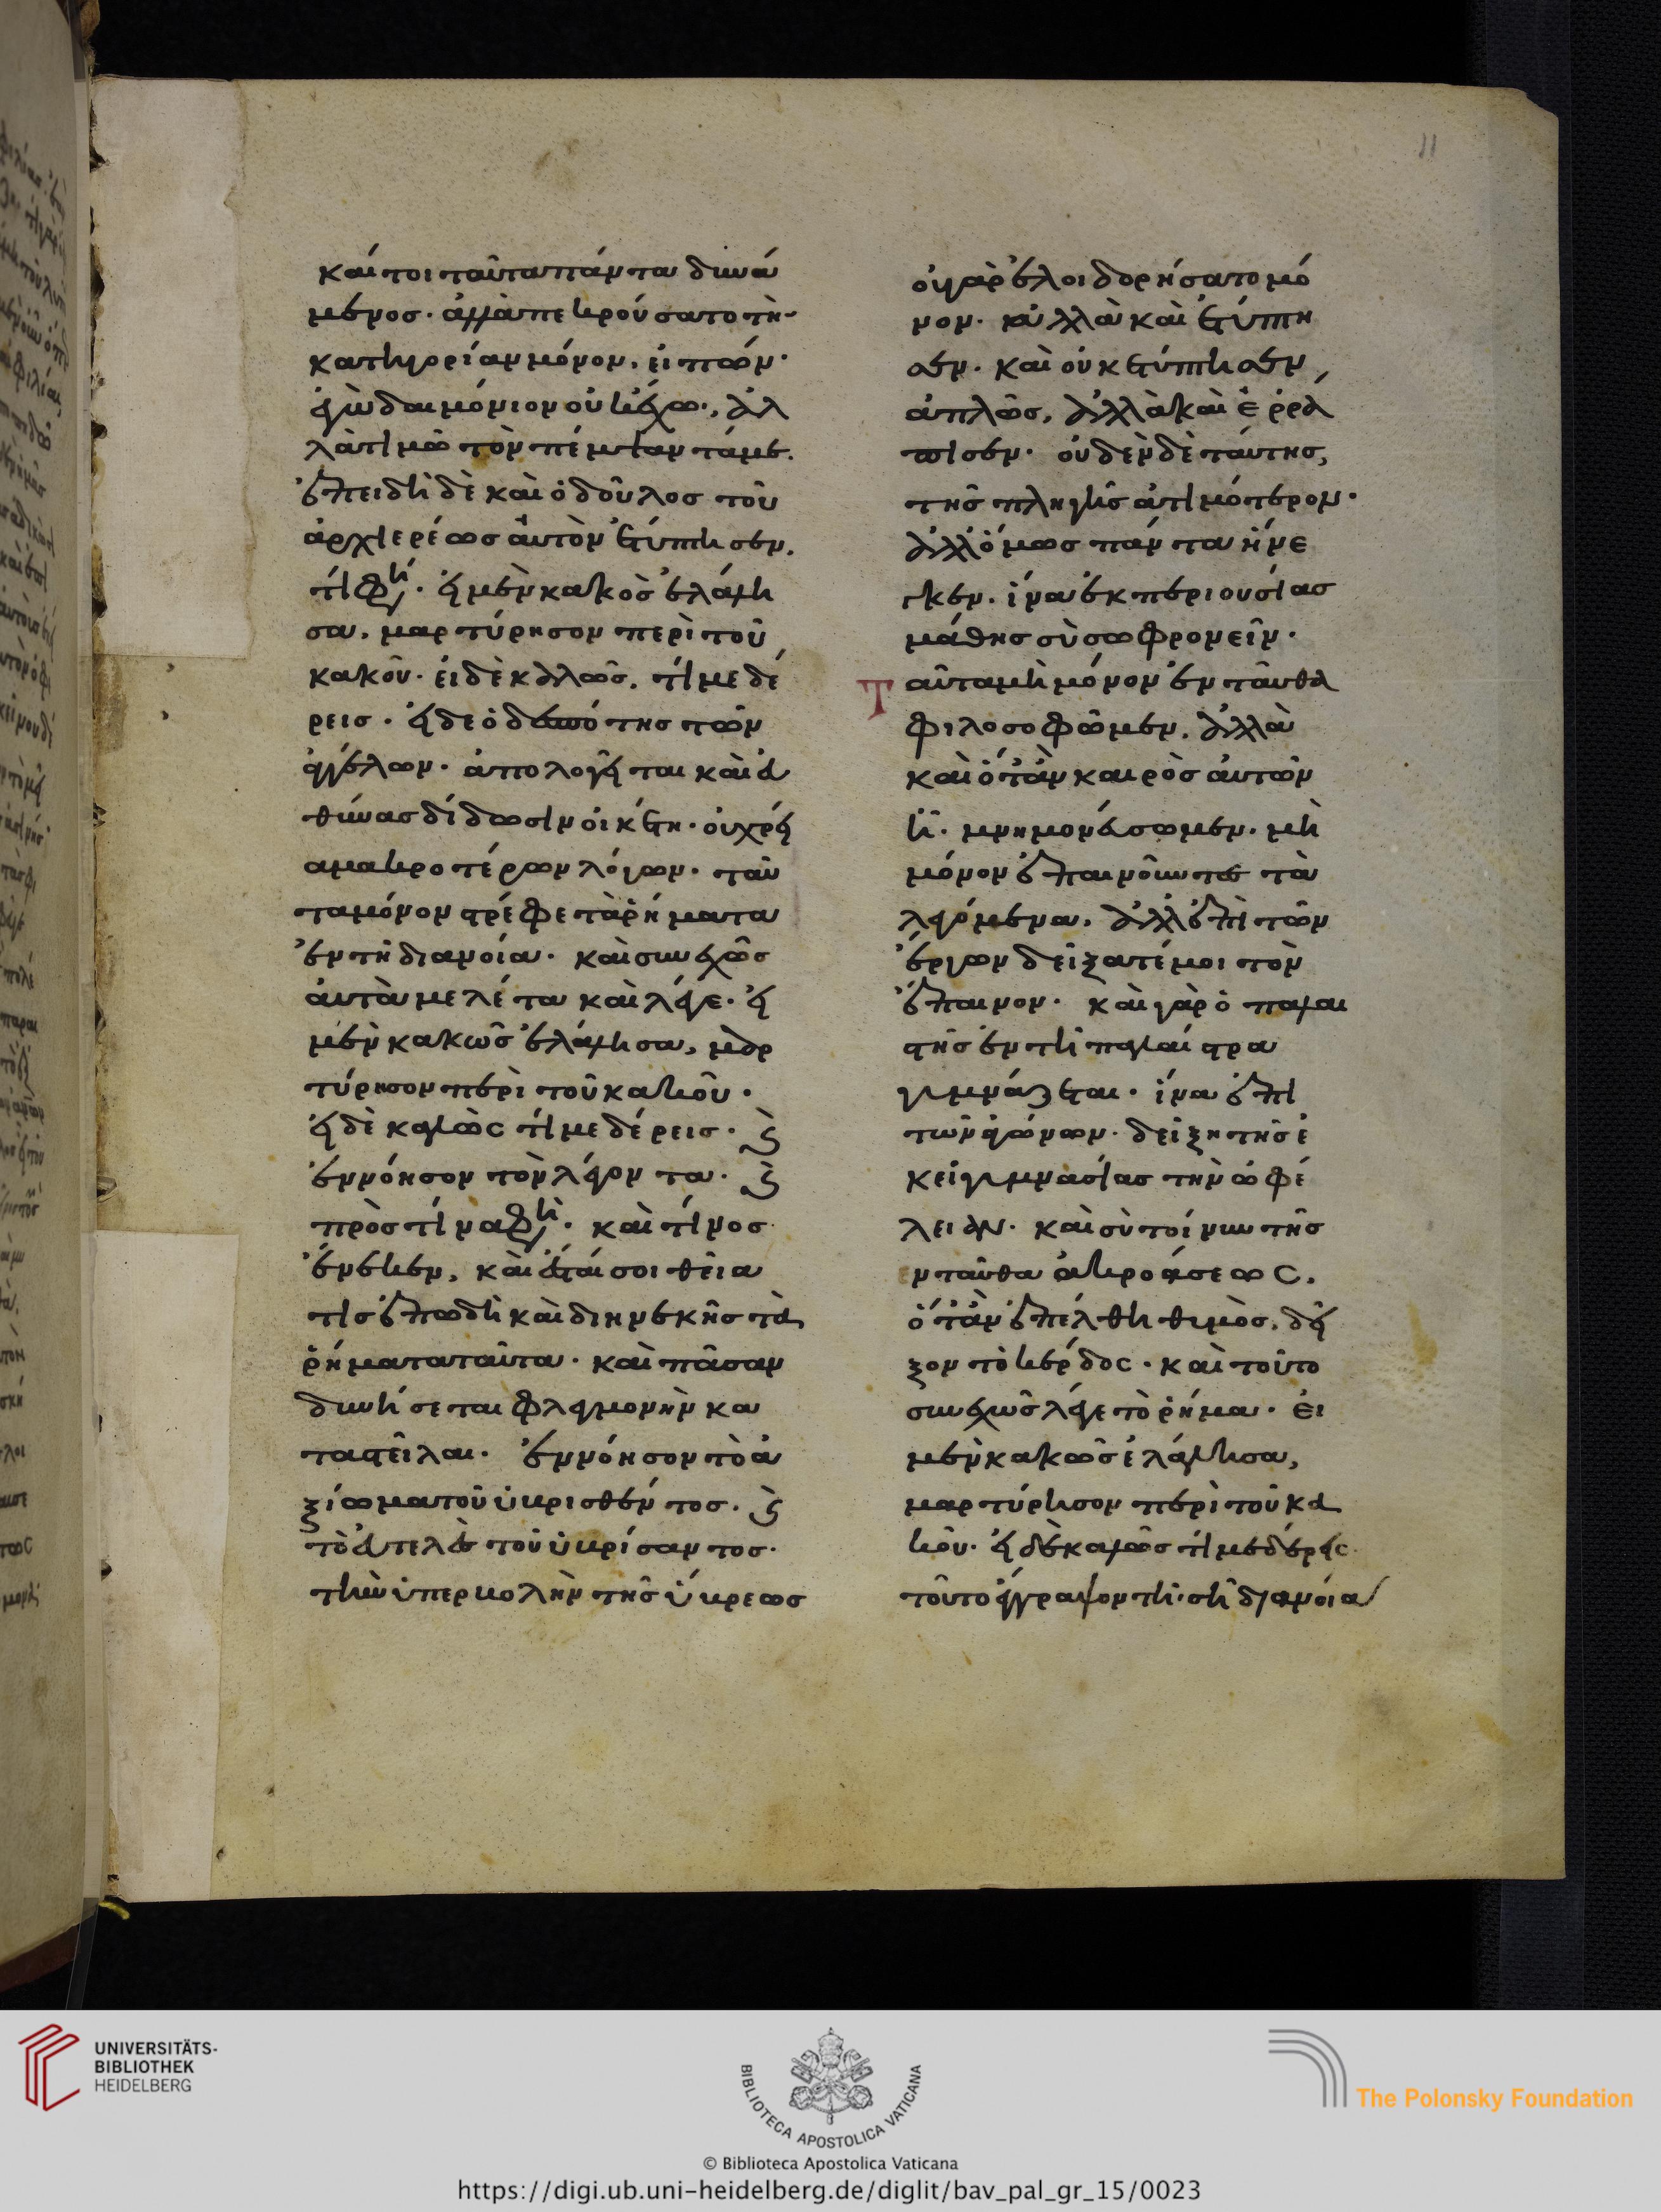 καίτοι ταῦτα πάντα δυνά
μενος· ἀλλὰ πεκρούσατο τὴν
κατηγορίαν μόνον, εἰπών·
ἐγὼ δαιμόνιον οὐκ ἔχω, ἀλ
λὰ τιμῶ τὸν πέμψαντά με.
ἐπειδὴ δὲ καὶ ὁ δοῦλος τοῦ
ἀρχιερέωσ ἀυτὸν ἐτύπτησεν,
τί φησί· εἰ μὲν κακὸς ἐλάλη
σα, μαρτύρησον περὶ τοῦ
κακοῦ· εἰ δὲ κάλῶς, τί με δέ
ρεις· εἰ δε ὁ δεσπότης τῶν
ἀγγέλων· ἀπολογεῖται καὶ εὐ
θύνας δίδωσιν οἰκέτη· οὐ χρεί
α μακροτέρων λόγων· ταῦ
τα μόνον στρέφε τὰ ῥήματα
ἐν τῆ διανοία· καὶ συνεχῶς
ἀυτὰ μελέτα καὶ λέγε· εἰ
μὲν κακῶς ἐλάλησα, μαρ
τύρησον περὶ τοῦ κακοῦ·
εἰ δὲ καλῶς τί με δέρεις· καὶ
ἐννόησον τὸν λέγοντα· καὶ
πρὸς τίνα φησὶ· καὶ τίνος
ἕνεκεν, καὶ ἔσται σοι θεῖα
τὶς ἐπωδὴ καὶ διηνεκὴς τὰ
ῥήματα ταῦτα· καὶ πᾶσαν
δυνήσεται φλεγμονὴν κα
ταστεῖλαι· ἐννόησον τὸ ἀ
ξίωμα τοῦ ὑβρισθέντος· καὶ
τὸ εὐτελὲς τοῦ ὑβρίσαντος·
τὴν ὑπερβολὴν τῆς ὕβρεως
οὐ γὰρ ἐλοιδορήσατο μό
νον· ἀλλὰ καὶ ἐτύπτη
σεν· καὶ οὐκ ἐτύπτησεν
ἁπλῶς, ἀλλὰ καὶ ἐρρά
πισεν· οὐδὲν δὲ ταύτης,
τῆς πληγῆς ἀτιμότερον·
ἀλλ' ὅμως πάντα ἤνε
γκεν· ἵνα ἐκ περιουσίας
μάθης σὺ σωφρονεῖν·
Ταῦτα μὴ μόνον ἐνταῦθα
φιλοσοφῶμεν, ἀλλὰ
καὶ ὅταν καιρὸς ἀυτῶν
ἦ· μνημονεύσωμεν· μὴ
μόνον ἐπαινοῦντες τὰ
λεγόμενα, ἀλλ' ἐπὶ τῶν
ἔργων δείξατέ μοι τὸν
ἔπαινον· καὶ γὰρ ὁ παλαι
στὴς ἐν τῆ παλαίστρα
γυμνάζεται· ἵνα ἐπὶ
τῶν ἀγώνων· δείξη τῆς ἐ
κεῖ γυμνασίας τὴν ὠφέ
λειαν· καὶ σὺ τοίνυν τῆς
ἐνταῦθα ἀκροάσεως,
ὅταν ἐπέλθη θυμὸς, δεῖ
ξον τὸ κέρδος· καὶ τοῦτο
συνεχῶς λέγε τὸ ῥῆμα· εἰ
μὲν κακῶς ἐλάλησα,
μαρτύρησον περὶ τοῦ κα
κοῦ· εἰ δὲ καλῶς τί με δέρεις
τοῦτο ἔγγραψον τῆ σῆ διανοία
11
UNIVERSITÄTS-
BIBLIOTHEK
HEIDELBERG
BIBLIOTECA APOSTOLICA VATICANA
The Polonsky Foundation
© Biblioteca Apostolica Vaticana
https://digi.ub.uni-heidelberg.de/diglit/bav_pal_gr_15/0023